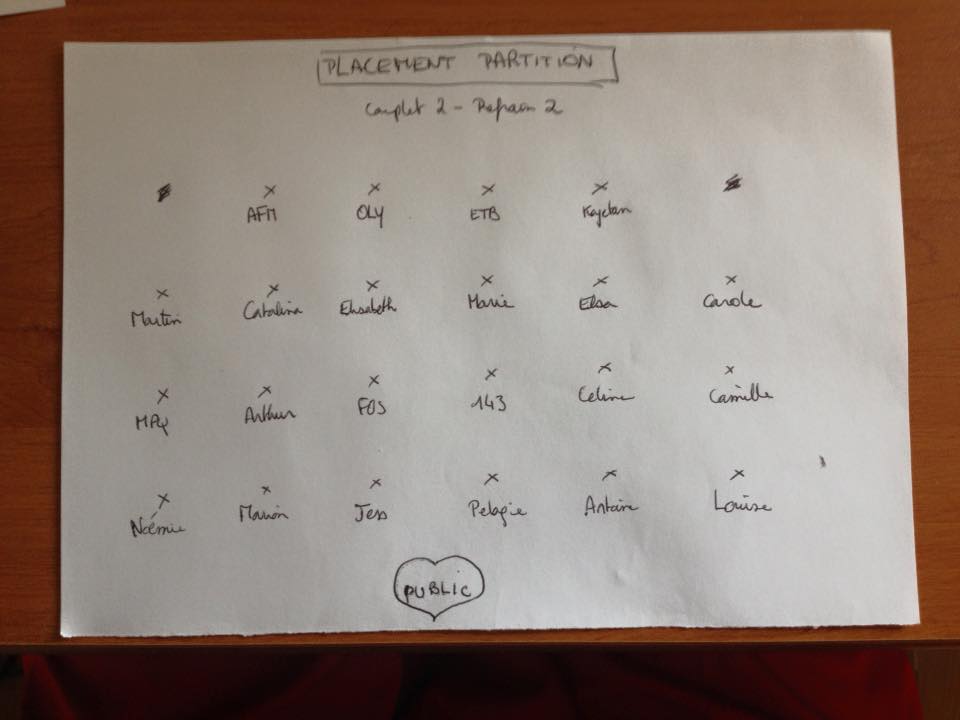 PLACEMENT PARTITION
Couplet 2 - Refrain 2
AFM OLY ETB Kajetan
Martin Catalina Elisabeth Marie Elsa Carole
Arthur FOS 143 Céline Camille
Noémie Marion Jess Pelagie Antoine Louise
PUBLIC